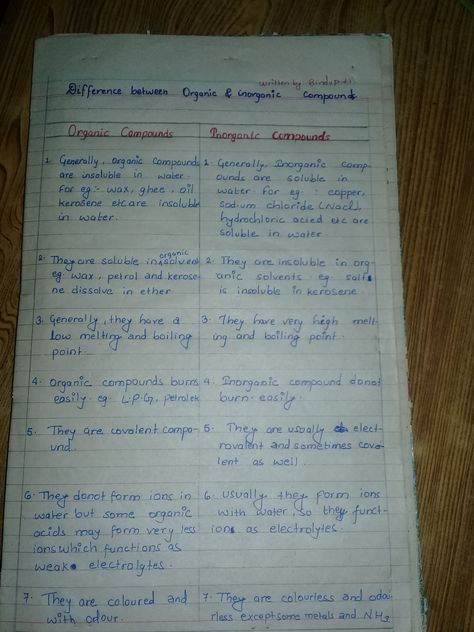 written by Bindu
Difference between Organic & inorganic compounds
Organic Compounds
1. Generally, organic compounds
are insoluble in water.
for eg:- wax, ghee, oil
kerosene etc are insoluble
in water.
2. They are soluble in organic solvent
eg. wax, petrol and kerose-
ne dissolve in ether
3. Generally, they have a
low melting and boiling
point.
4. Organic compounds burns
easily. eg. L.P.G, petrol etc
5. They are covalent compo-
und.
6. They donot form ions in
water but some organic
acids may form very less
ions which functions as
weak electrolytes.
7. They are coloured and
with odour.
Inorganic Compounds
1. Generally, Inorganic comp-
ounds are soluble in
water for eg : copper,
sodium chloride (Nacl),
hydrochloric acied etc are
soluble in water.
2. They are insoluble in org-
anic solvents eg. salt
is insoluble in kerosene.
3. They have very high melt-
ing and boiling point.
4. Inorganic compound donot
burn easily.
5. They are usually elect-
rovalent and sometimes cova-
lent as well.
6. usually they form ions
with water, so they funct-
ions as electrolytes.
7. They are colourless and odou-
rless except some metals and NH3